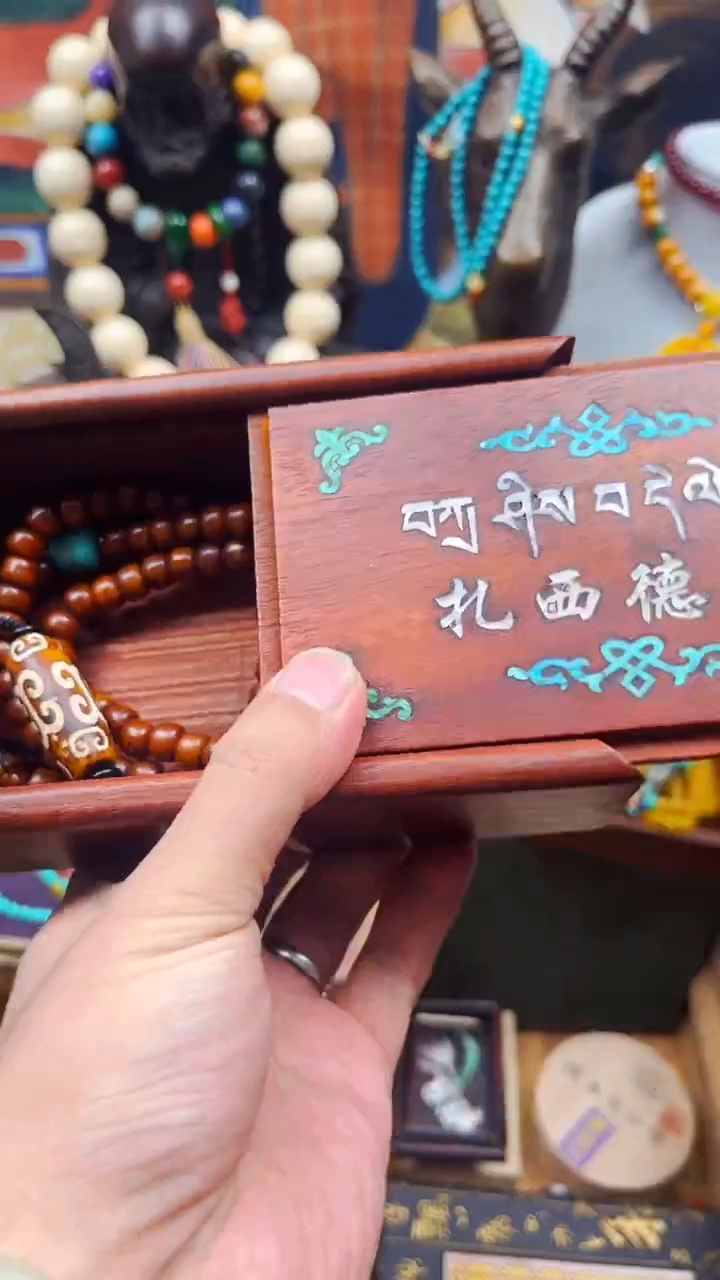 བཀྲ ཤིས བ དེ
扎西德